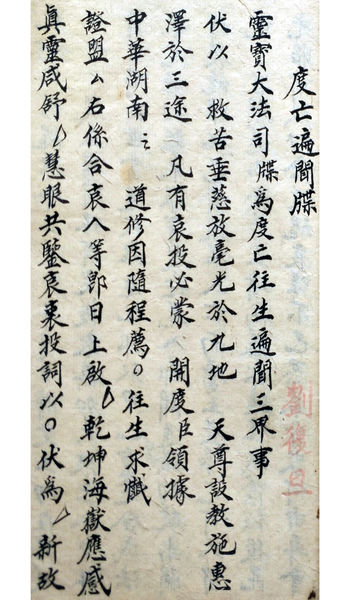 度亡遍聞牒
靈寶大法司 牒爲度亡往生遍聞三界事
伏以 救苦垂慈放毫光於九地 天尊設教施惠
澤於三途 凡有哀投必蒙 開度臣領據
中華湖南 道修因隨程薦〇往生求懺
證盟厶右係合哀人等即日上啟 乾坤海嶽應感
真靈咸舒 慧眼共鑒哀衷投詞以〇伏爲 新故
劉復旦